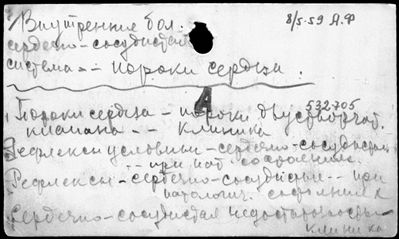 Внутренние бол. 8/5-59 А.Ф
сердечно-сосудистая
система -- пороки сердца.
4
532705
Пороки сердца - пороки двустворчат.
клапана -- клиника
Рефлексы условные - сердечно-сосудистые
-- при пат. состояниях.
Рефлексы - сердечно-сосудистые -- при
патологич. состояниях
Сердечно-сосудистая недостаточность-
клиника